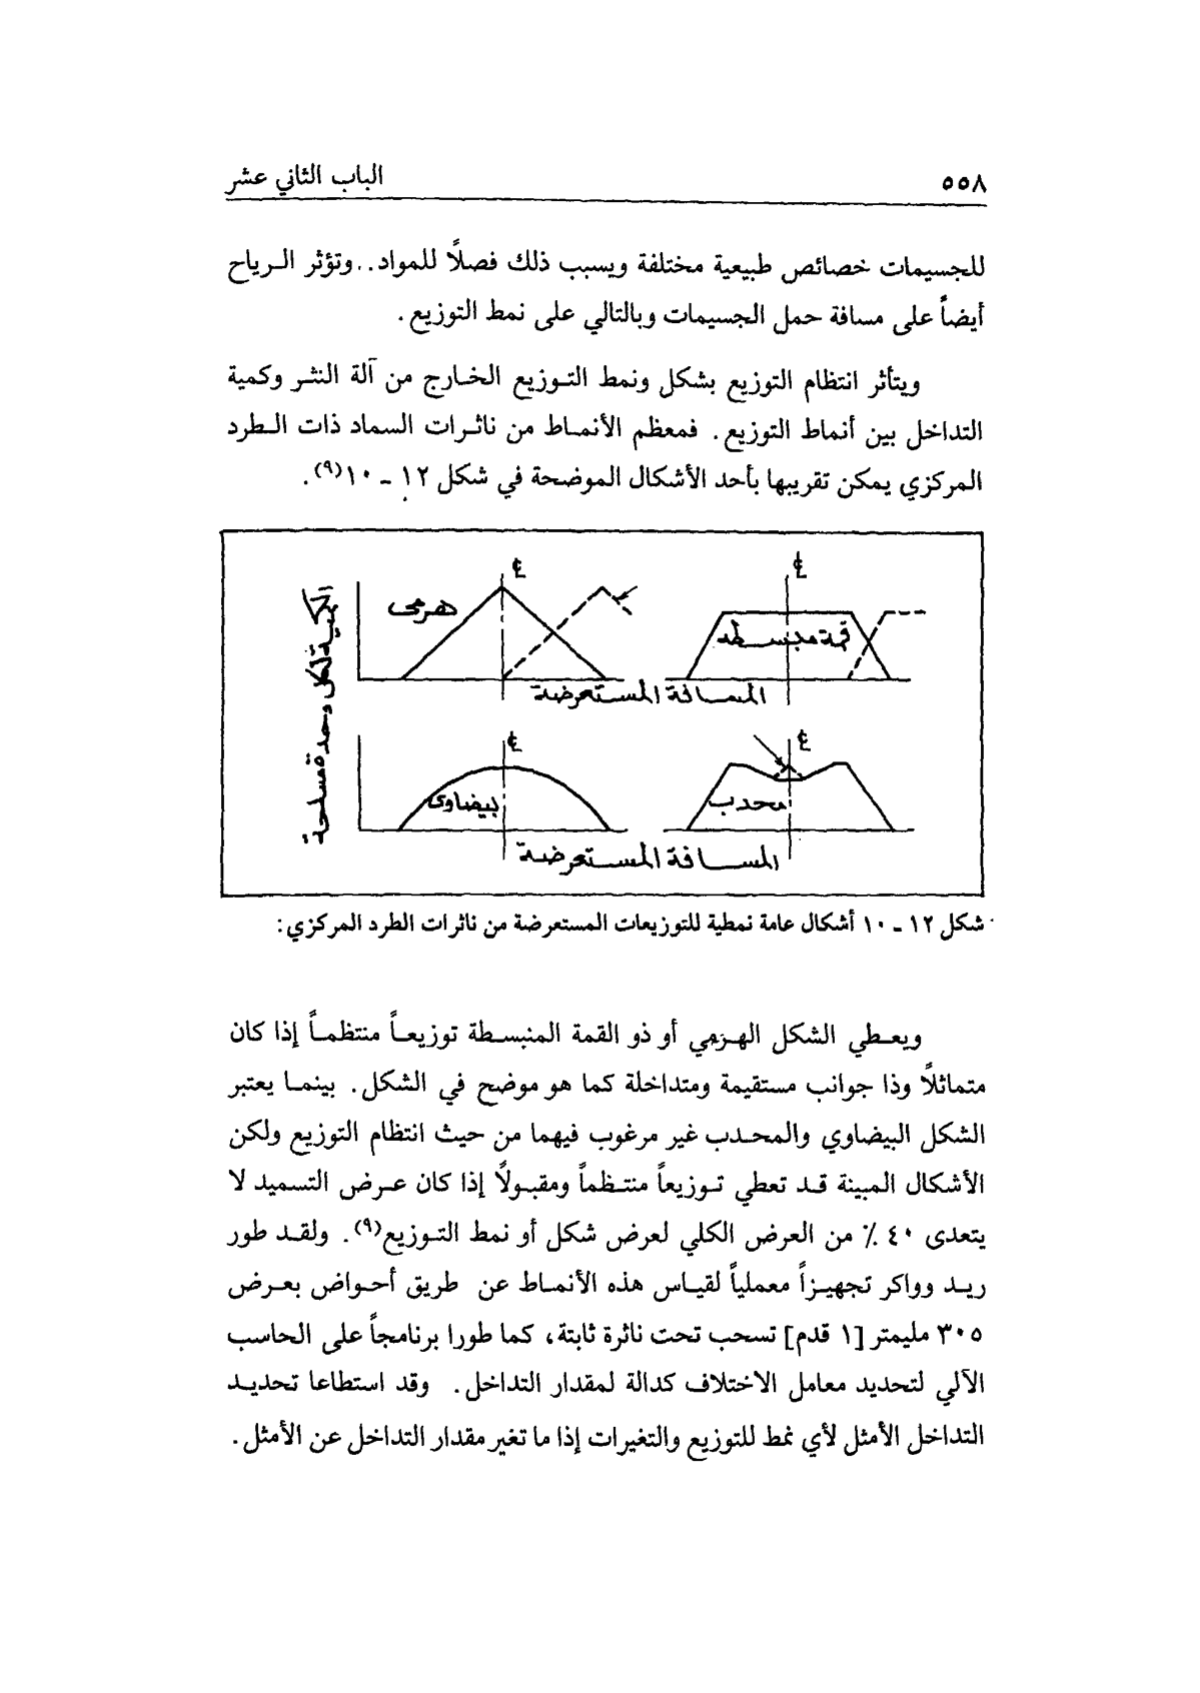 ٥٥٨
الباب الثاني عشر
للجسيمات خصائص طبيعية مختلفة ويسبب ذلك فصلاً للمواد.. وتؤثر الرياح
أيضاً على مسافة حمل الجسيمات وبالتالي على نمط التوزيع.
ويتأثر انتظام التوزيع بشكل ونمط التوزيع الخارج من آلة النثر وكمية
التداخل بين أنماط التوزيع. فمعظم الأنماط من ناثرات السماد ذات الطرد
المركزي يمكن تقريبها بأحد الأشكال الموضحة في شكل ١٢ - ١٠(٩).
الكمية لكل وحدة مساحة
هرمى
قمة منبسطه
المسافة المستعرضة
بيضاوى
محدب
المسافة المستعرضة
شكل ١٢ - ١٠ أشكال عامة نمطية للتوزيعات المستعرضة من ناثرات الطرد المركزي:
ويعطي الشكل الهرمي أو ذو القمة المنبسطة توزيعاً منتظماً إذا كان
متماثلاً وذا جوانب مستقيمة ومتداخلة كما هو موضح في الشكل. بينما يعتبر
الشكل البيضاوي والمحدب غير مرغوب فيهما من حيث انتظام التوزيع ولكن
الأشكال المبينة قد تعطي توزيعاً منتظماً ومقبولاً إذا كان عرض التسميد لا
يتعدى ٤٠ ٪ من العرض الكلي لعرض شكل أو نمط التوزيع(٩). ولقد طور
ريد وواكر تجهيزاً معملياً لقياس هذه الأنماط عن طريق أحواض بعرض
٣٠٥ مليمتر [١ قدم] تسحب تحت ناثرة ثابتة، كما طورا برنامجاً على الحاسب
الآلي لتحديد معامل الاختلاف كدالة لمقدار التداخل. وقد استطاعا تحديد
التداخل الأمثل لأي نمط للتوزيع والتغيرات إذا ما تغير مقدار التداخل عن الأمثل.